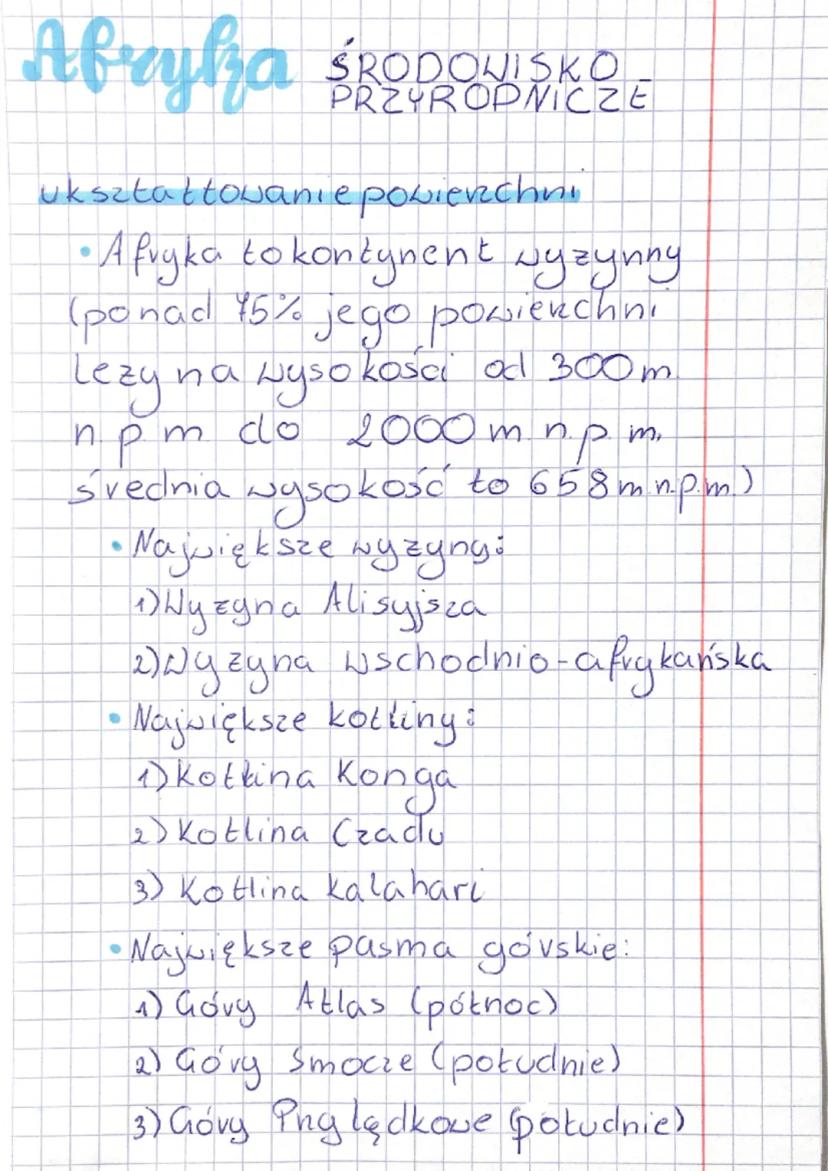 Afryka ŚRODOWISKO
PRZYRODNICZE
ukształtowanie powierzchni
• Afryka to kontynent wyzynny
(ponad 75% jego powierzchni
lezy na wysokości od 300 m.
n.p m do 2000 m n.p. m.
średnia wysokość to 658 m n.p.m.)
• Największe wyzyny:
1) Wyzyna Alisyjsza
2) Wyzyna wschodnio-afrykańska
• Największe kotliny:
1) Kotlina Konga
2) Kotlina Czadu
3) Kotlina Kalahari
• Największe pasma górskie:
1) Góry Atlas (północ)
2) Góry Smocze (południe)
3) Góry Przylądkowe (południe)